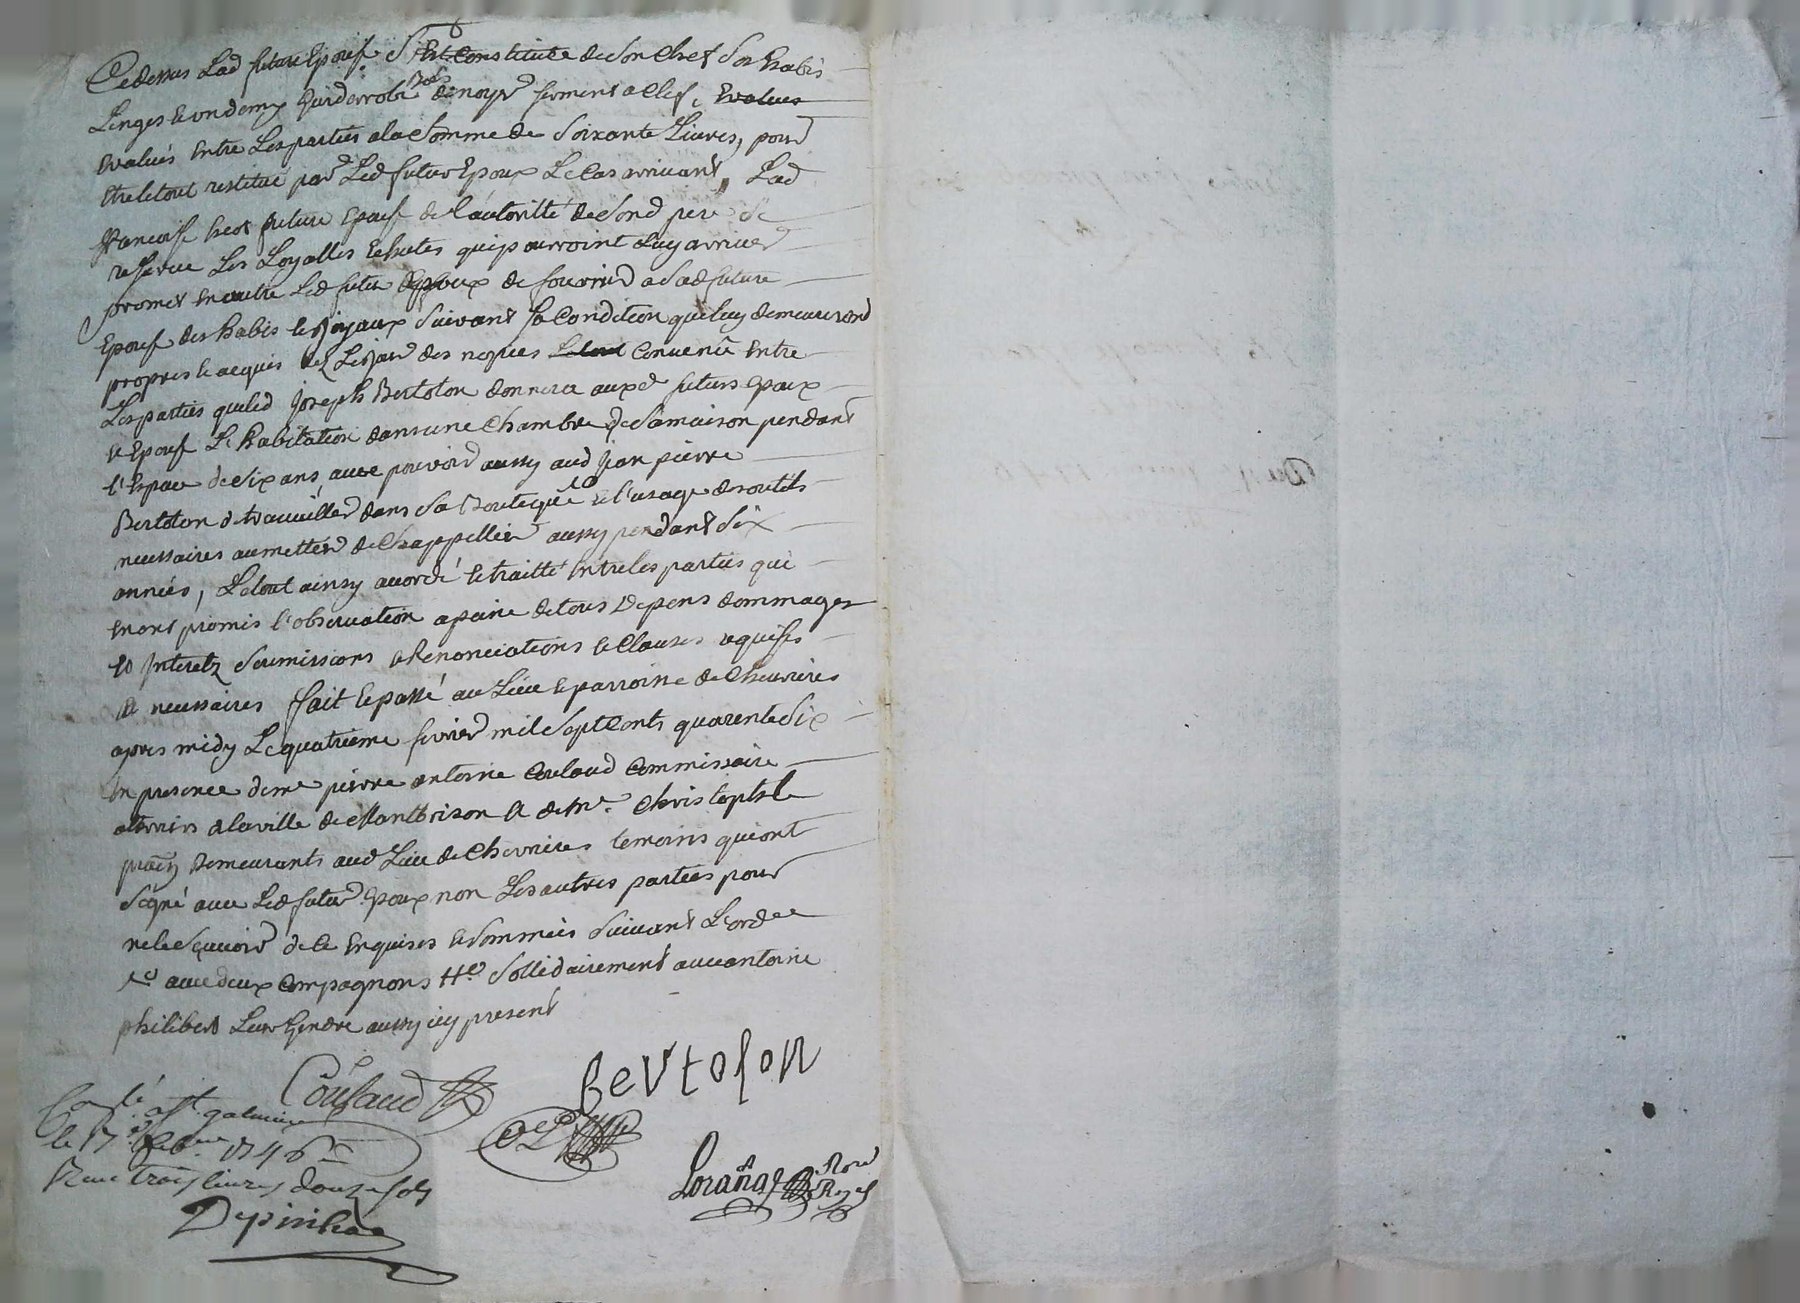 Cedessus Lad future Epouse S'Est Constituée de Son Chef Ses habis
Linges et un demy Garderobe bois de noyer ferment a Clef, Evalués
Evalués Entre Les parties a la Somme de Soixante Livres, pour
Etre le tout restitué par Led futur Epoux Le Cas arrivant, Lad
francoise future Epouse de l'autoritté de Sond pere Se
reserve Les Loyalles Echutes qui pourroint Luy arriver
promet en outre Led futur Epoux de fournir a Sad future
Epouse des habis et Joyaux Suivant Sa Condition que luy demeureront
propres et acquis dez Le jour des nopces Le tout Convenu Entre
Les parties que led Joseph Bertolon donnera auxd futurs Epoux
et Epouse L'habitation dans une Chambre de Sa maison pendant
l'Espace de Six ans avec pouvoir aussy aud Jean pierre
Bertolon de travailler dans Sa Boutique et l'usage des outils
necessaires au mettier de Chappellier aussy pendant Six
années, Le tout ainsy accordé et traitté Entre les parties qui
En ont promis l'observation a peine de tous Depens dommages
et Interetz Soumissions et Renonciations et Clauses requises
et necessaires fait et passé au Lieu et parroisse de Chevrieres
apres midy Le quatrieme fevrier mil Sept Cents quarente Six
En presence de me pierre antoine Coulaud Commissaire
a terriers de la ville de Montbrison et de Mr. Christophle
demeurants aud Lieu de Chevrieres temoins qui ont
Signé avec Led futur Epoux non Les autres parties pour
ne le Sçavoir de Ce Enquises et Sommées Suivant L'ordce
avec deux Compagnons Sollidairement avec antoine
philibert Leur Gendre aussy icy present
Coulaud
Bertolon
Con.lé a St. galmier
le 17e feb. 1746
Receu trois livres douze sols
Depinhac
Not.
Royal